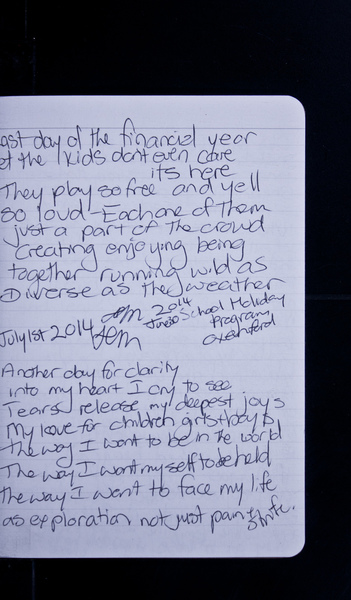 ast day of the financial year
et the kids dont even care
its here
They play so free and yell
so loud - Each one of them
just a part of the crowd
Creating enjoying being
together running wild as
Diverse as the weather
Jem 2014
Junee School Holiday
Program
July 1st 2014 Jem
Another day for clarity
into my heart I cry to see
Tears release my deepest joys
My love for children girls + boys
the way I want to be in the world
The way I want myself to be held
the way I want to face my life
as exploration not just pain & strife.